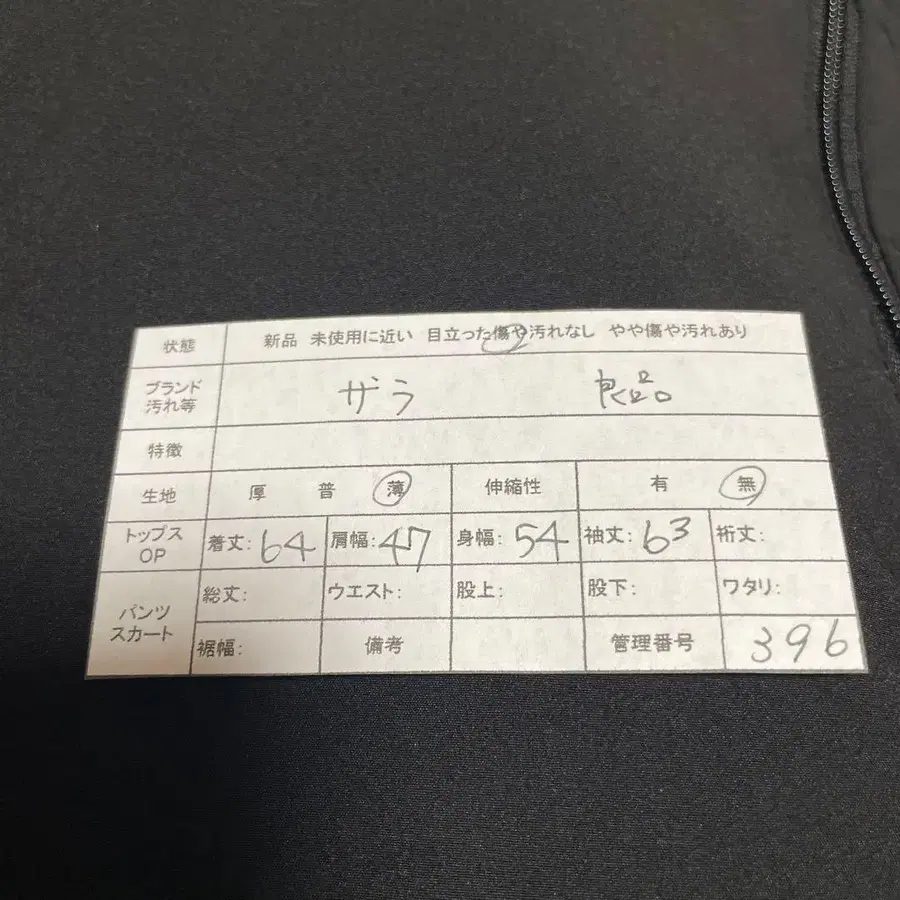 状態 新品 未使用に近い 目立った傷や汚れなし やや傷や汚れあり
ブランド 汚れ等 ザラ 良品
特徴
生地 厚 普 薄 伸縮性 有 無
トップス OP 着丈:64 肩幅:47 身幅:54 袖丈:63 裄丈:
パンツ スカート 総丈: ウエスト: 股上: 股下: ワタリ:
裾幅: 備考 管理番号 396